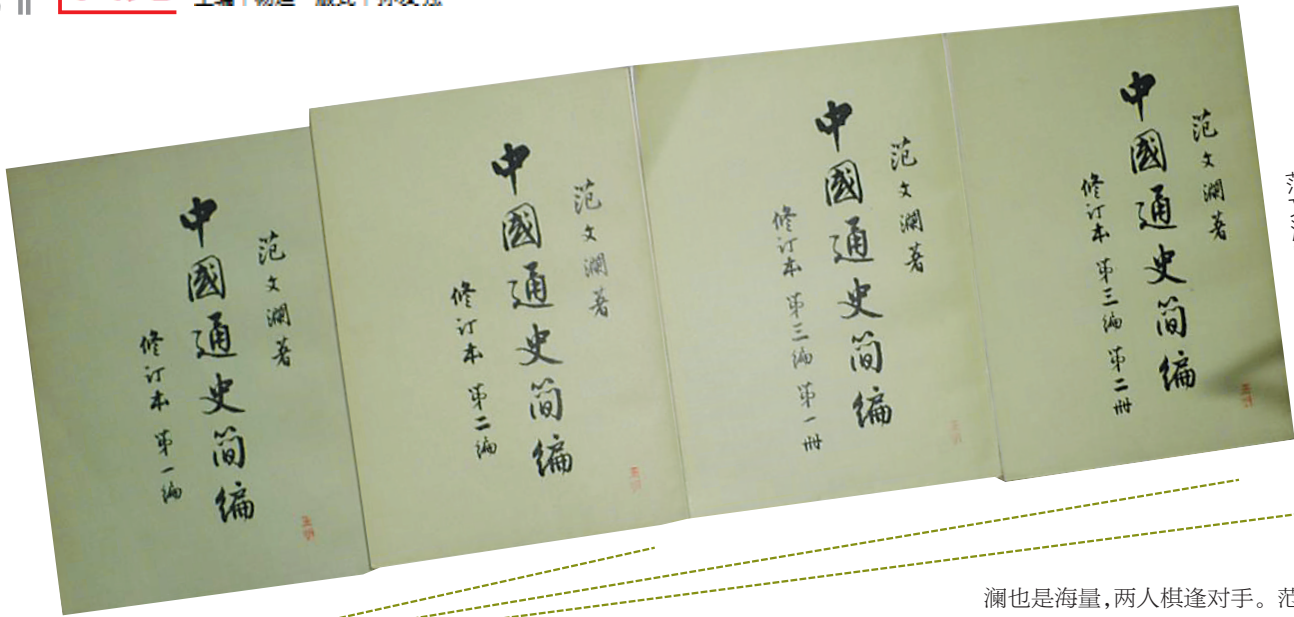 范文瀾著
中國通史简編
修订本 第一編
范文瀾著
中國通史简編
修订本 第二編
范文瀾著
中國通史简編
修订本 第三編 第一册
范文瀾著
中國通史简編
修订本 第三編 第二册
澜也是海量,两人棋逢对手。范